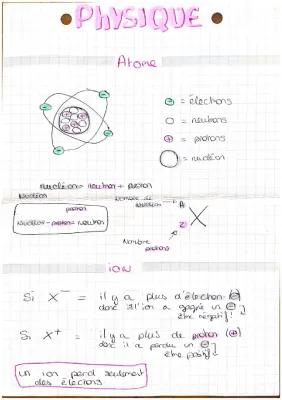 PHYSIQUE
Atome
= électrons
= neutrons
= protons
= nucléon
nucléon = neutron + proton
Nombre de
nucléons
A
X
Z
proton
nucléon - proton = neutron
Nombre
protons
ION
Si X⁻ = il y a plus d'électron (-)
donc l'ion a gagné un (-)
être négatif!
Si X⁺ = il y a plus de proton (+)
donc il a perdu un (-)
être positif
un ion perd seulement
des électrons